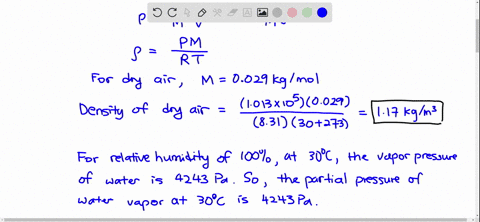 ρ = PM / RT
For dry air, M = 0.029 kg/mol
Density of dry air = (1.013×10⁵)(0.029) / (8.31)(30+273) = 1.17 kg/m³
For relative humidity of 100%, at 30°C, the vapor pressure
of water is 4243 Pa. So, the partial pressure of
water vapor at 30°C is 4243 Pa.